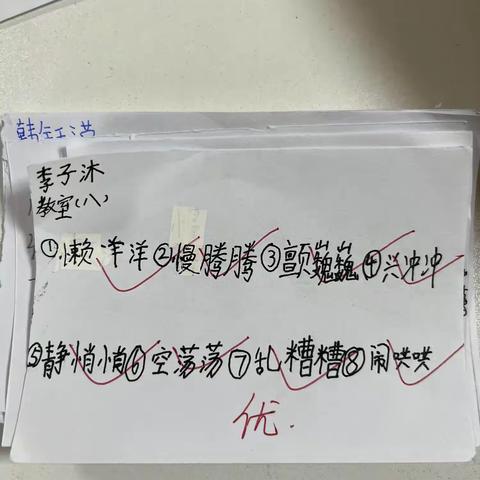 李子沐
教室(八)
①懒洋洋②慢腾腾③颤巍巍④兴冲冲
⑤静悄悄⑥空荡荡⑦乱糟糟⑧闹哄哄
优.